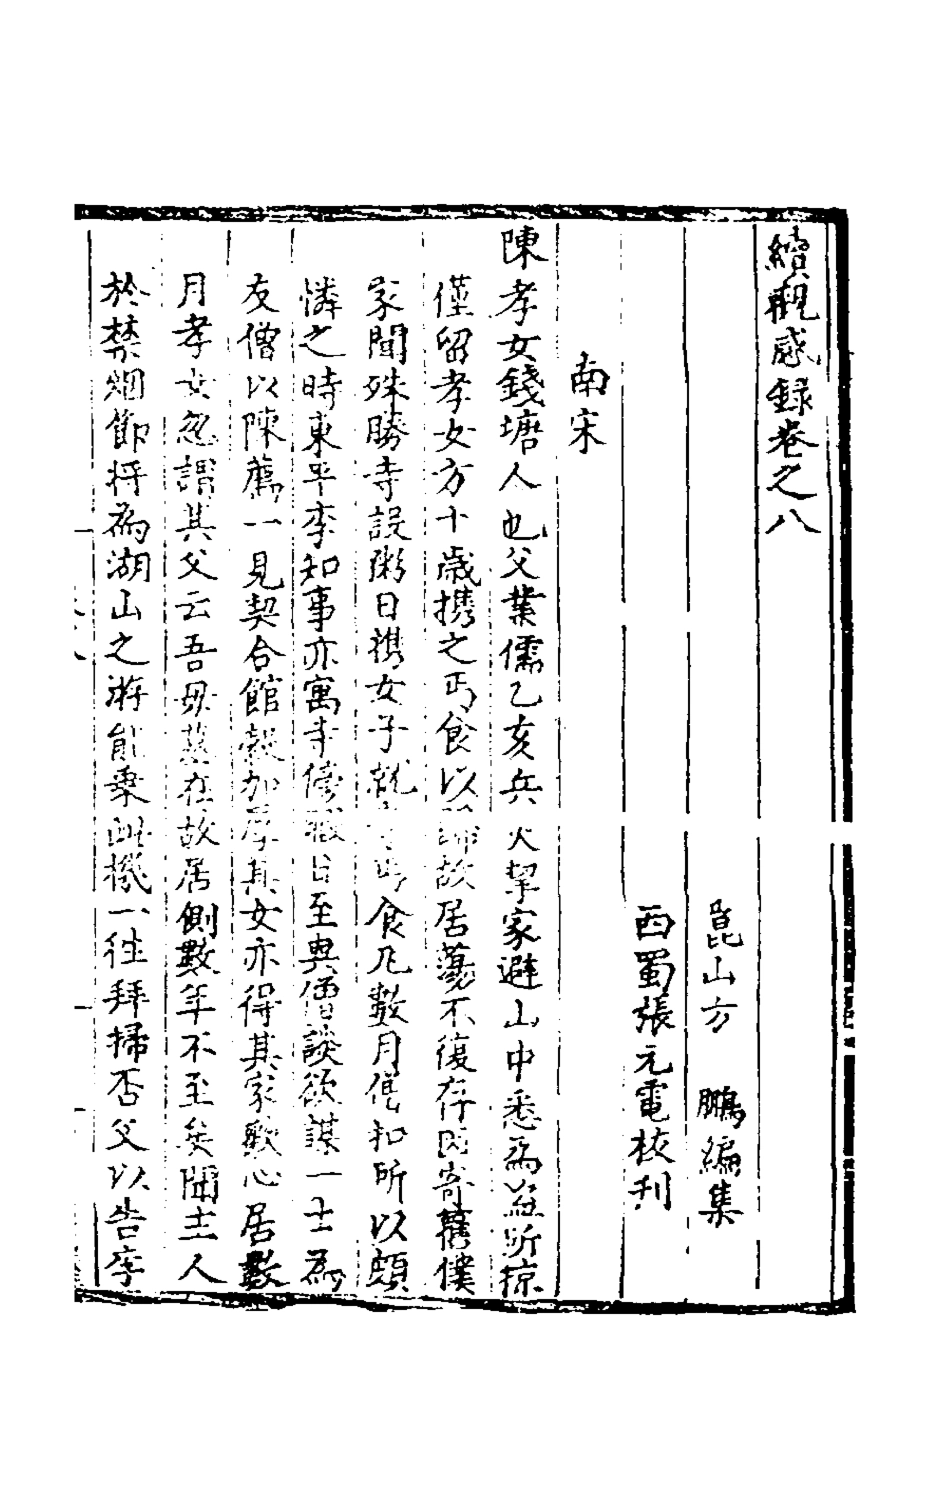 續觀感録卷之八
崑山方　鵬編集
西蜀張元電校刋
南宋
陳孝女錢塘人也父業儒乙亥兵火挈家避山中悉為盗所掠
僅留孝女方十歳携之丐食以歸故居蕩不復存因寄舊僕
家間殊勝寺設粥日携女子就寺丐食凡數月僧扣所以頗
憐之時東平李知事亦寓寺傍職日至與僧談欲謀一士為
友僧以陳薦一見契合館穀加厚其女亦得其家歡心居數
月孝女忽謂其父云吾母墓在故居側數年不至矣聞主人
於禁烟節将為湖山之游能乗此機一往拜掃否父以告李